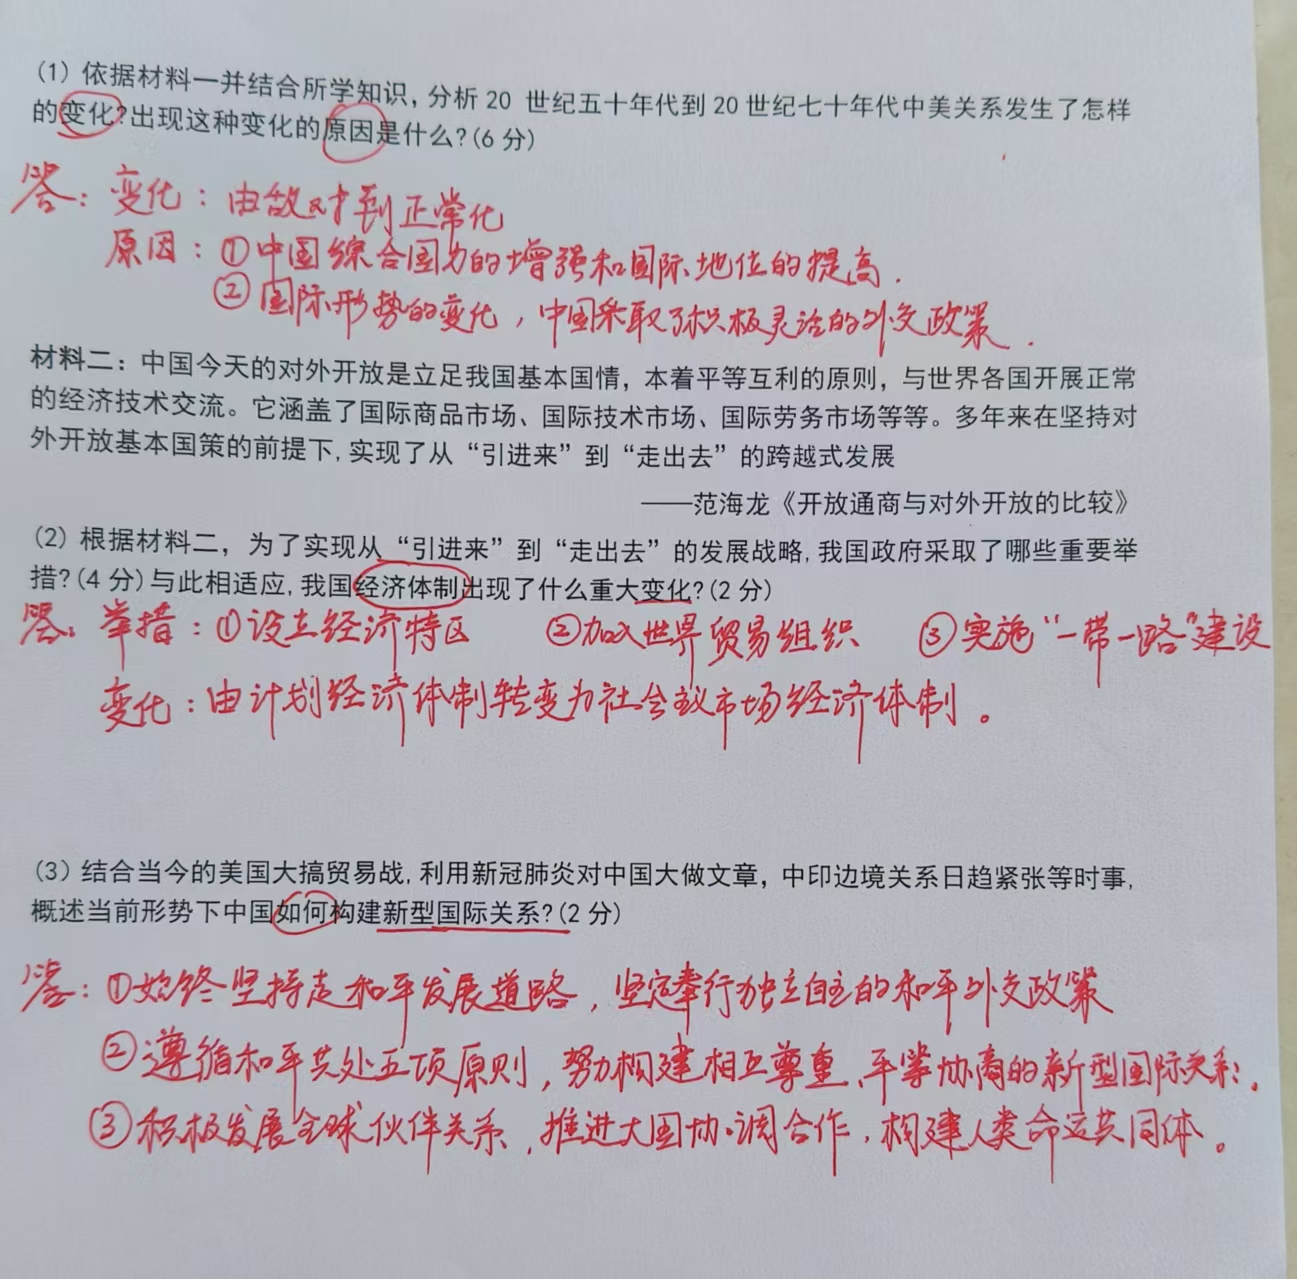 (1) 依据材料一并结合所学知识,分析20 世纪五十年代到20世纪七十年代中美关系发生了怎样
的变化?出现这种变化的原因是什么?(6分)
答:变化:由敌对到正常化
原因:①中国综合国力的增强和国际地位的提高.
②国际形势的变化,中国采取了积极灵活的外交政策.
材料二:中国今天的对外开放是立足我国基本国情,本着平等互利的原则,与世界各国开展正常
的经济技术交流。它涵盖了国际商品市场、国际技术市场、国际劳务市场等等。多年来在坚持对
外开放基本国策的前提下,实现了从“引进来”到“走出去”的跨越式发展
——范海龙《开放通商与对外开放的比较》
(2) 根据材料二,为了实现从“引进来”到“走出去”的发展战略,我国政府采取了哪些重要举
措?(4分)与此相适应,我国经济体制出现了什么重大变化?(2分)
答:举措:①设立经济特区 ②加入世界贸易组织 ③实施“一带一路”建设
变化:由计划经济体制转变为社会主义市场经济体制。
(3) 结合当今的美国大搞贸易战,利用新冠肺炎对中国大做文章,中印边境关系日趋紧张等时事,
概述当前形势下中国如何构建新型国际关系?(2分)
答:①始终坚持走和平发展道路,坚定奉行独立自主的和平外交政策
②遵循和平共处五项原则,努力构建相互尊重、平等协商的新型国际关系.
③积极发展全球伙伴关系,推进大国协调合作,构建人类命运共同体。